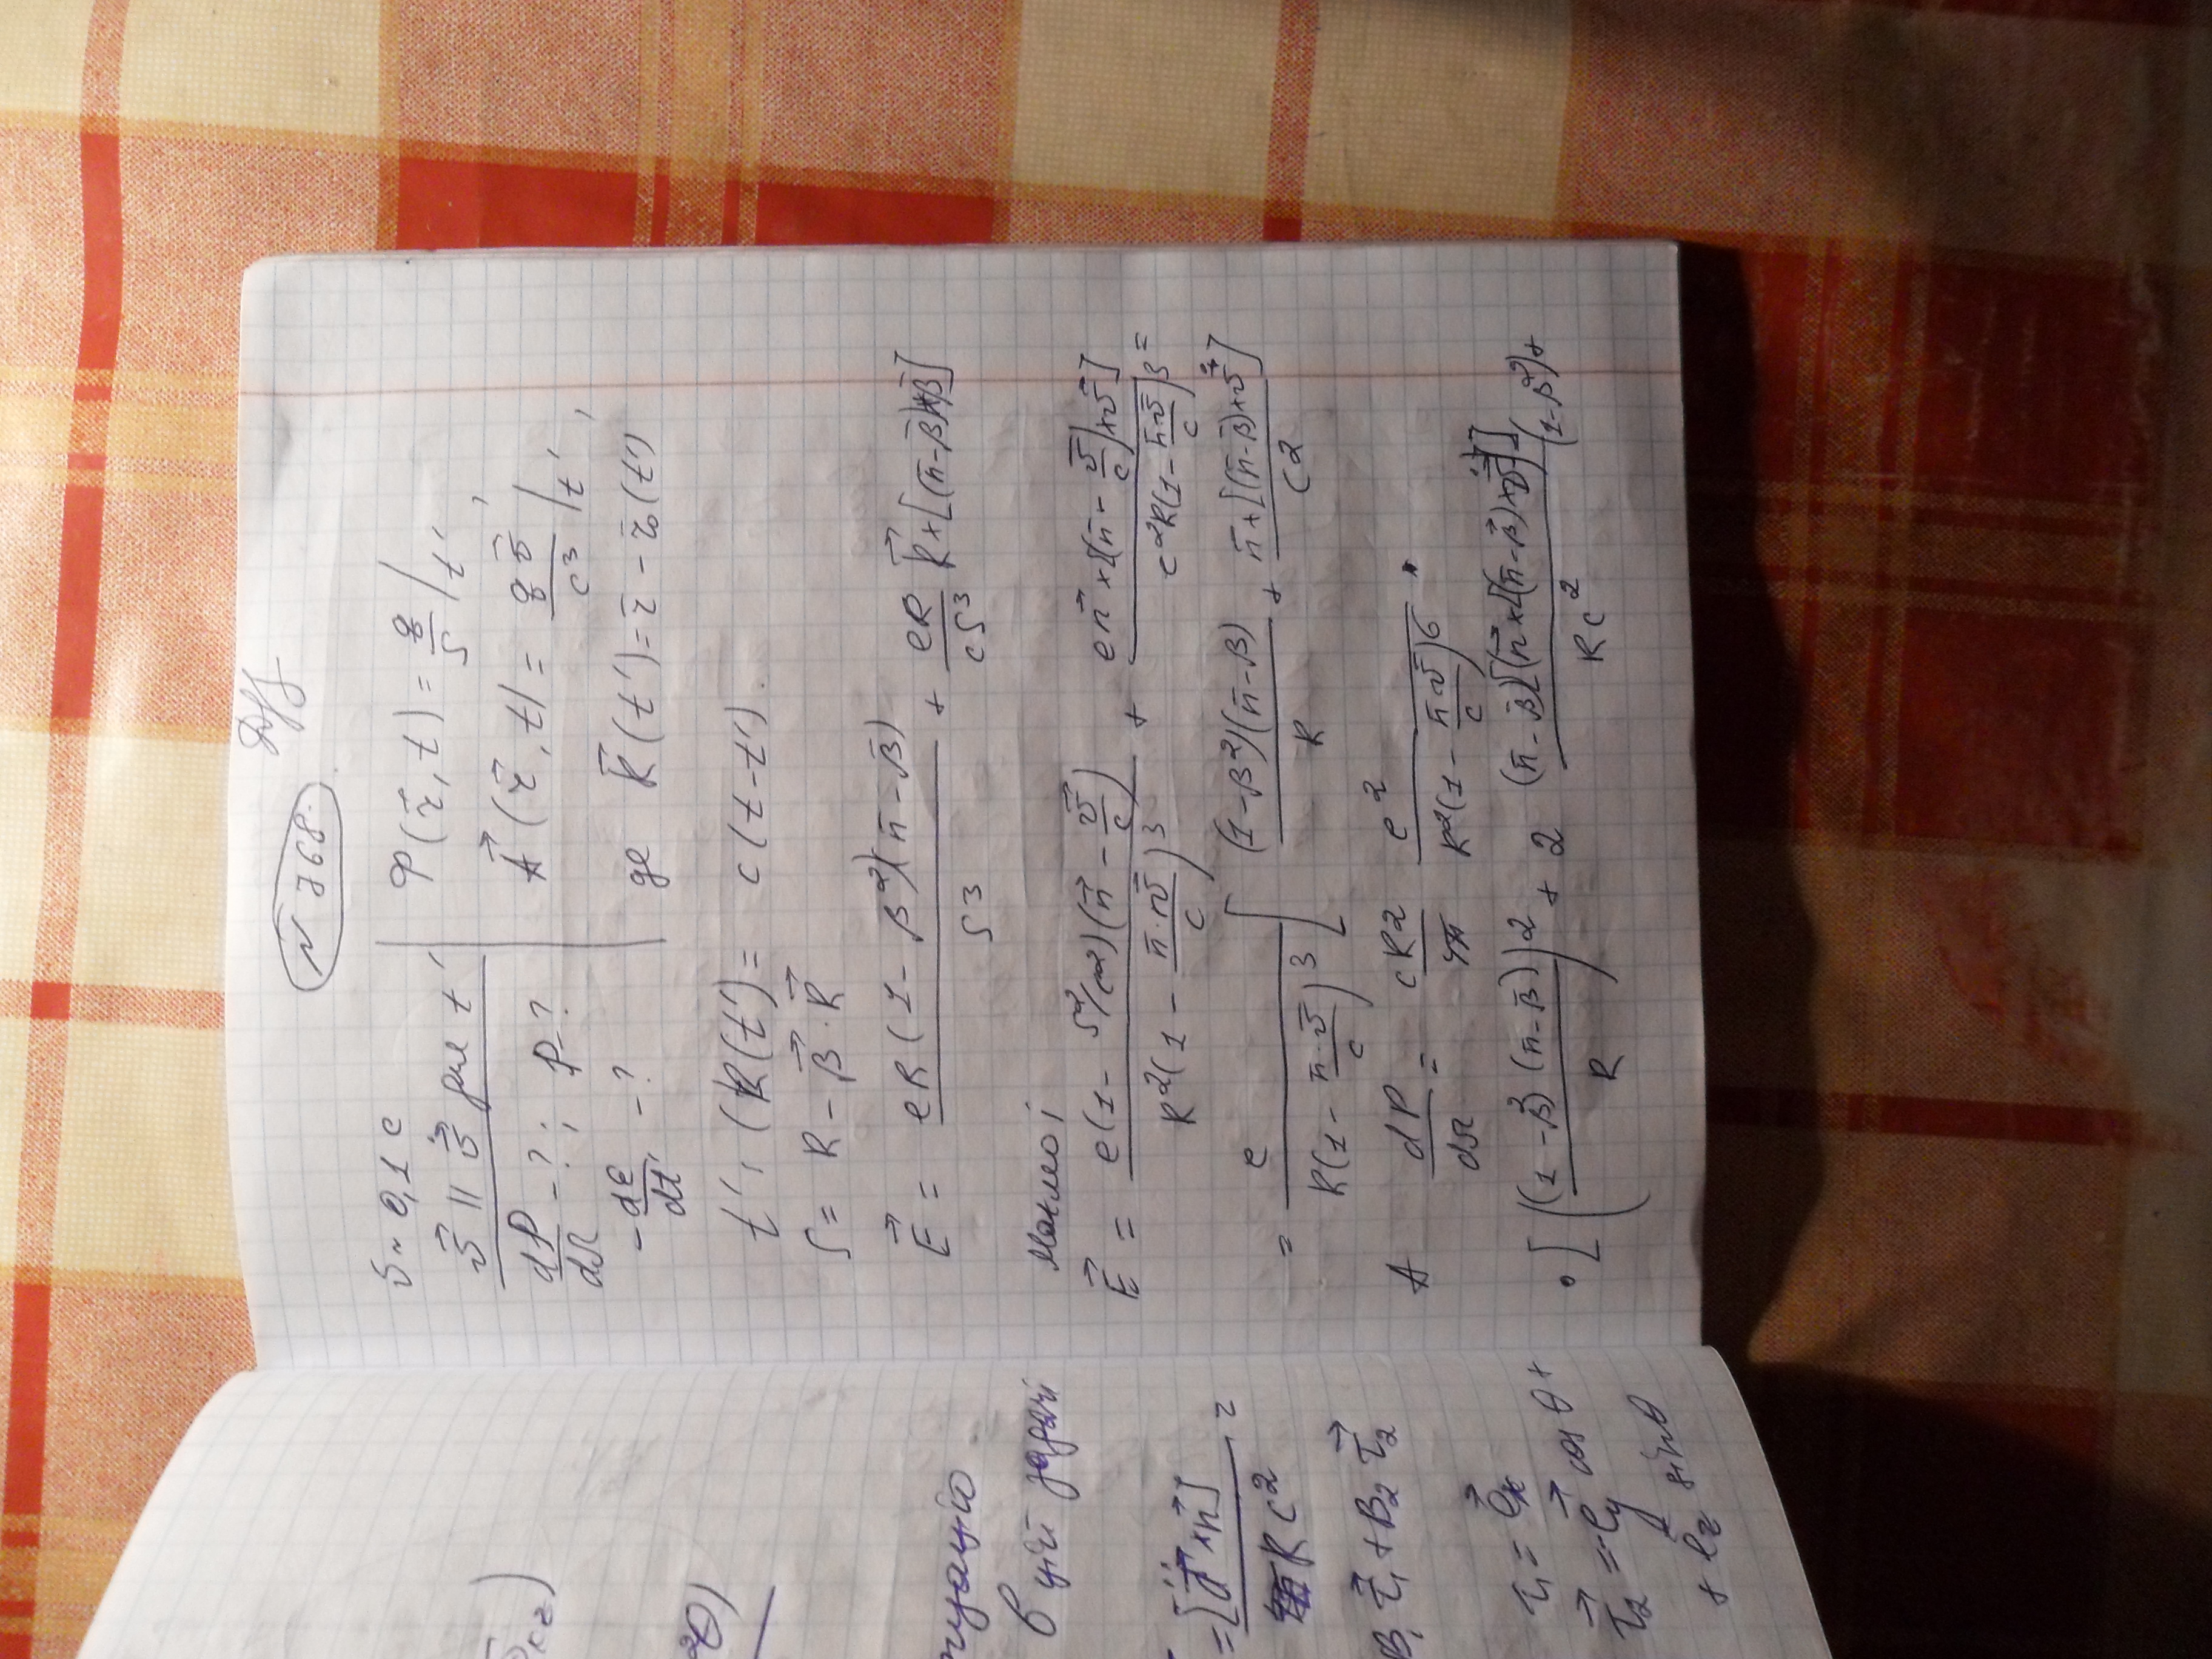 Д/З
N 768.
v ~ 0,1 c
v⃗ || v̇⃗ для t'
dP/dΩ - ?; P - ?
- dε/dt' - ?
φ(r⃗, t) = q/S |t',
A⃗(r⃗, t) = q v̄/cS |t',
де R⃗(t') = r̄ - r̄₀(t')
t', (R(t') = c(t - t').
S = R - β⃗ · R⃗
E⃗ = eR(1 - β²)(n̄ - β̄)/S³ + eR/cS³ R⃗ × [(n̄ - β̄) × β̄]
E⃗ = e(1 - v²/c²)(n⃗ - v⃗/c)/R²(1 - n̄·v̄/c)³ + e n⃗ × [(n̄ - v̄/c) × v̄]/c²R(1 - n̄·v̄/c)³ =
= e/R(1 - n̄·v̄/c)³ [ (1 - β²)(n̄ - β̄)/R + n̄ × [(n̄ - β̄) × v̇]/c²
А dP/dΩ = cR²/4π e²/R²(1 - n̄·v̄/c)⁶ ·
· [ ((1 - β²)(n̄ - β̄)/R)² + 2 (n̄ - β̄)[(n⃗ × [(n̄ - β⃗) × v̇]]/Rc² (1 - β²) +
в цій задачі
= [d̈ × n⃗]/Rc²
B₁ τ⃗₁ + B₂ τ⃗₂
τ₁ = e⃗x
τ⃗₂ = -e⃗y cos θ +
+ ez sin θ